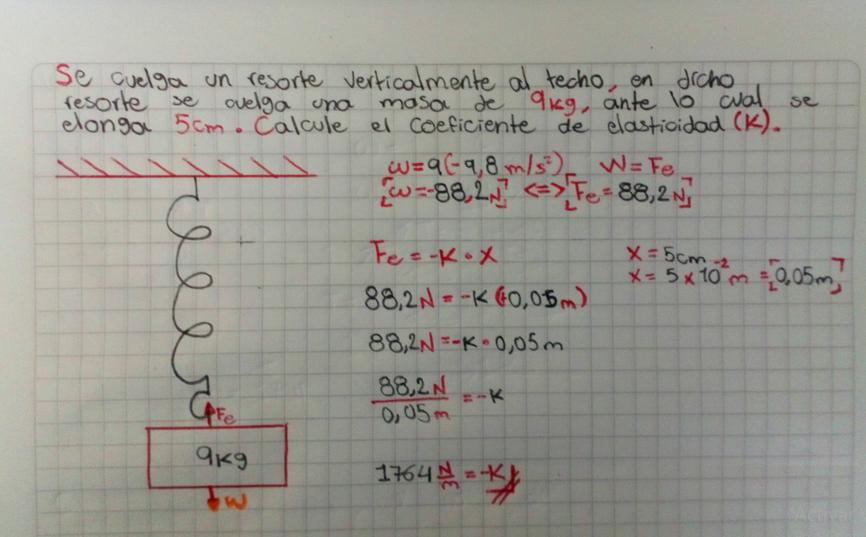 Se cuelga un resorte verticalmente al techo, en dicho
resorte se cuelga una masa de 9kg, ante lo cual se
elonga 5cm. Calcule el coeficiente de elasticidad (K).
w=9(-9,8 m/s²) W=Fe
[w=-88,2N] <=> [Fe=88,2N]
Fe = -K • X
X = 5cm
X = 5×10⁻² m = [0,05m]
88,2N = -K (+0,05m)
88,2N = -K • 0,05m
88,2N / 0,05m = -K
1764 N/m = -K
Fe
9kg
W